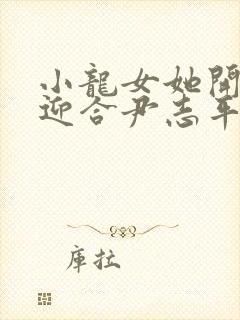 小龍女她開
迎合尹志平
庫拉